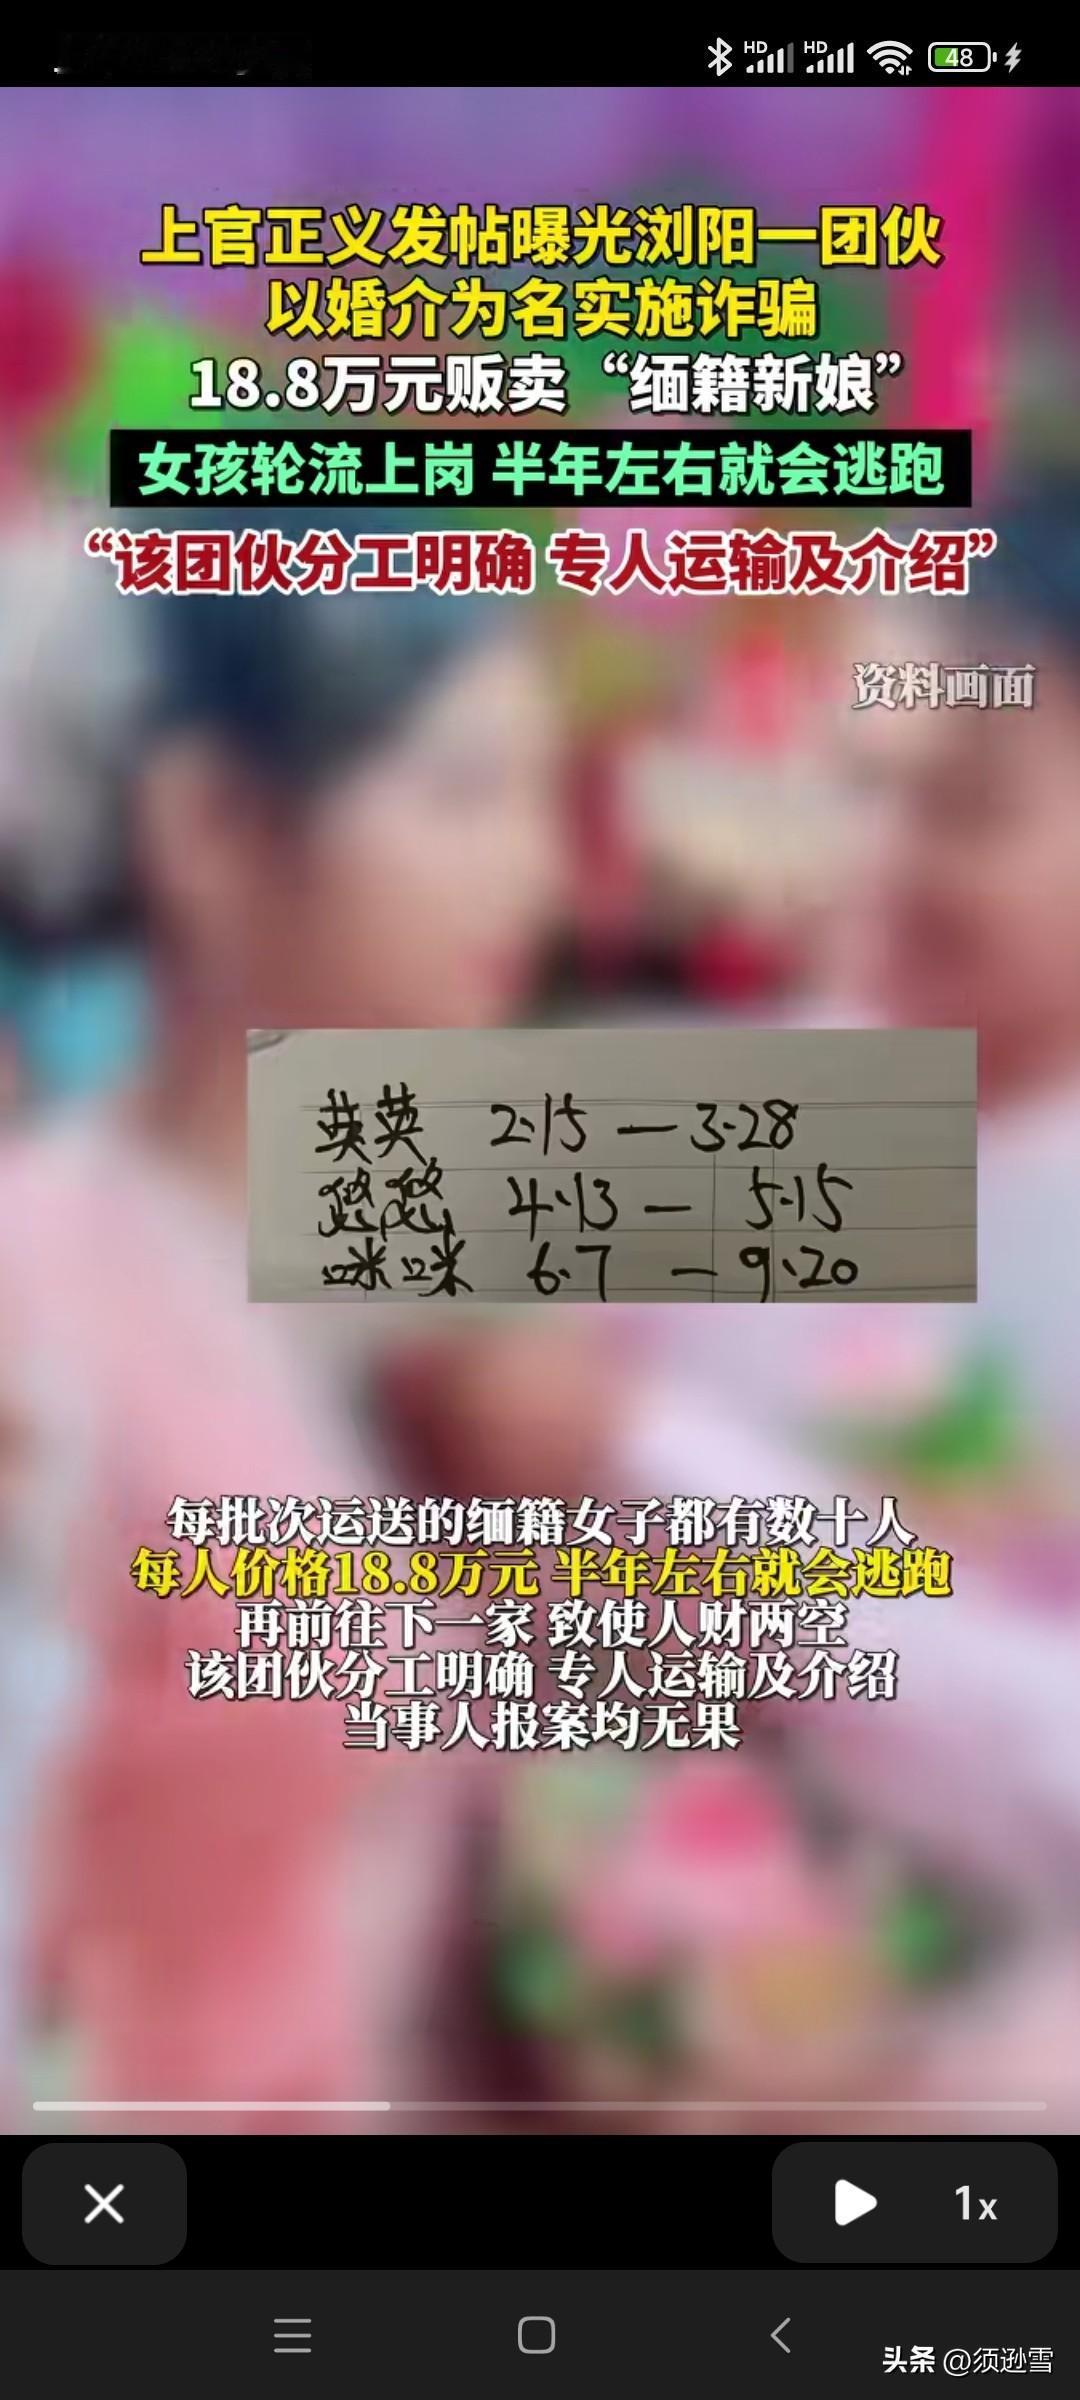 HD HD 48
上官正义发帖曝光浏阳一团伙
以婚介为名实施诈骗
18.8万元贩卖“缅籍新娘”
女孩轮流上岗 半年左右就会逃跑
“该团伙分工明确 专人运输及介绍”
资料画面
英英 2.15 — 3.28
悠悠 4.13 — 5.15
咪咪 6.7 — 9.20
每批次运送的缅籍女子都有数十人
每人价格18.8万元 半年左右就会逃跑
再前往下一家 致使人财两空
该团伙分工明确 专人运输及介绍
当事人报案均无果
1x
头条 @须逊雪